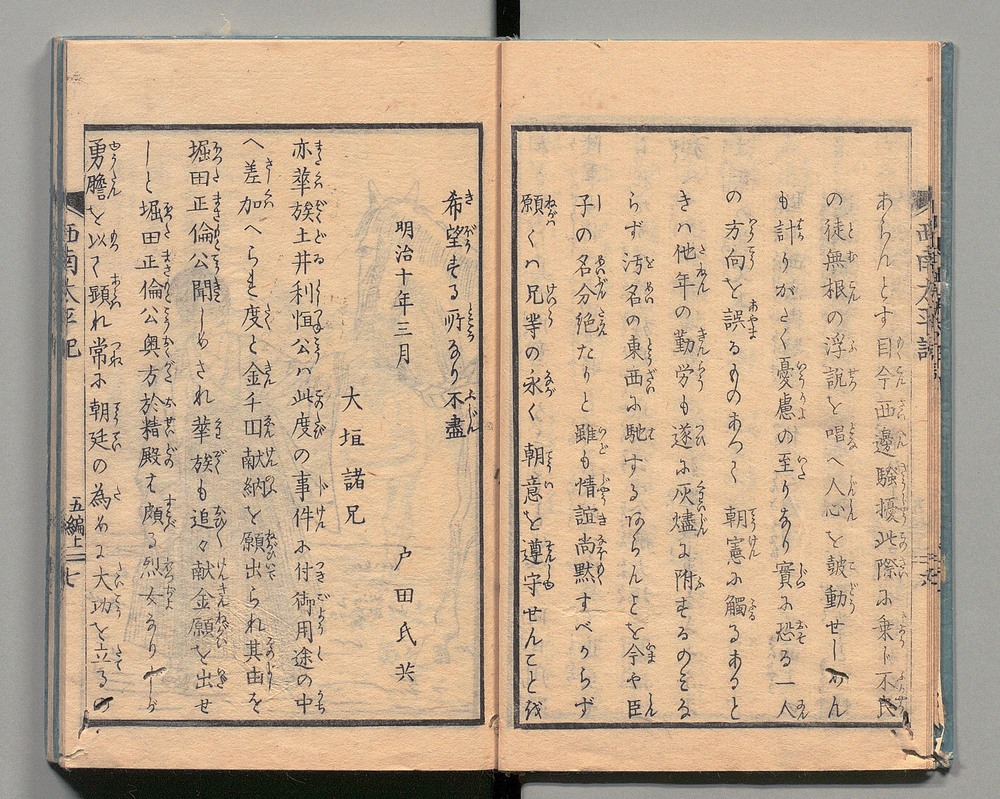 あらんとす目今西邊騒擾此際に乗し不良
の徒無根の浮説を唱へ人心を皷動せしめん
も計りがたく憂慮の至りあり實に恐る一人
の方向を誤るものあつて朝憲に觸るあると
きハ他年の勤労も遂に灰燼に附するのみな
らず汚名の東西に馳するならんとを今や臣
子の名分絶たりと雖も情誼尚黙すべからず
願くハ兄等の永く朝意を遵守せんことを
希望する所なり不盡
明治十年三月
戸田氏共
大垣諸兄
亦華族土井利恒公ハ此度の事件に付御用途の中
へ差加へられ度と金千円献納を願出られ其由を
堀田正倫公聞しめされ華族も追々献金願を出せ
しと堀田正倫公奥方於精殿も頗る烈女なりしが
勇膽を以て顕れ常に朝廷の為めに大功を立るの
西南太平記
五編上
七
西南太平記